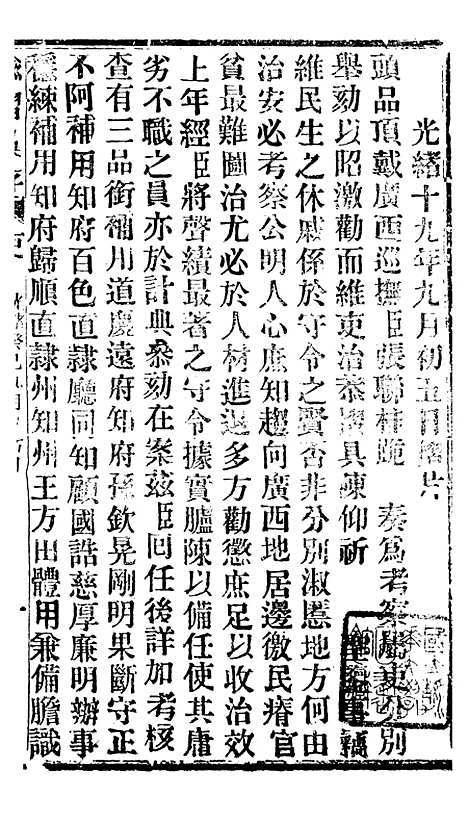 光緒十九年九月初五日
頭品頂戴廣西巡撫臣張聯桂跪 奏爲考察屬吏分別
舉劾以昭激勸而維吏治恭摺具陳仰祈 聖鑒事竊
維民生之休戚係於守令之賢否非分別淑慝地方何由
治安必考察公明人心庶知趨向廣西地居邊徼民瘠官
貧最難圖治尤必於人材進退多方勸懲庶足以收治效
上年經臣將聲績最著之守令據實臚陳以備任使其庸
劣不職之員亦於計典叅劾在案茲臣回任後詳加考核
查有三品銜補用道慶遠府知府孫欽晃剛明果斷守正
不阿補用知府百色直隸廳同知顧國誥慈厚廉明辦事
穩練補用知府歸順直隸州知州王方田體用兼備膽識